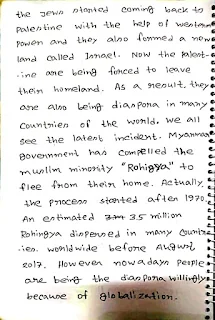 the Jews started coming back to
Palestine with the help of western
power and they also formed a new
land called Israel. Now the Palest-
-ine are being forced to leave
their homeland. As a result, they
are also being diaspora in many
Countries of the world. We all
see the latest incident. Myanmar
government has compelled the
muslim minority "Rohigya" to
flee from their home. Actually,
the process started after 1970.
An estimated 3.5 million
Rohingya dispersed in many Countr-
-ies. worldwide before August
2017. However nowadays people
are being the diaspora willingly
because of globalization.